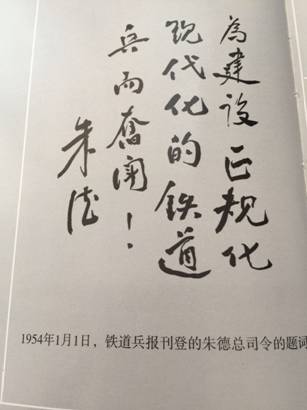 為建设正规化
现代化的铁道
兵而奋闘！
朱德
1954年1月1日，铁道兵报刊登的朱德总司令的题词